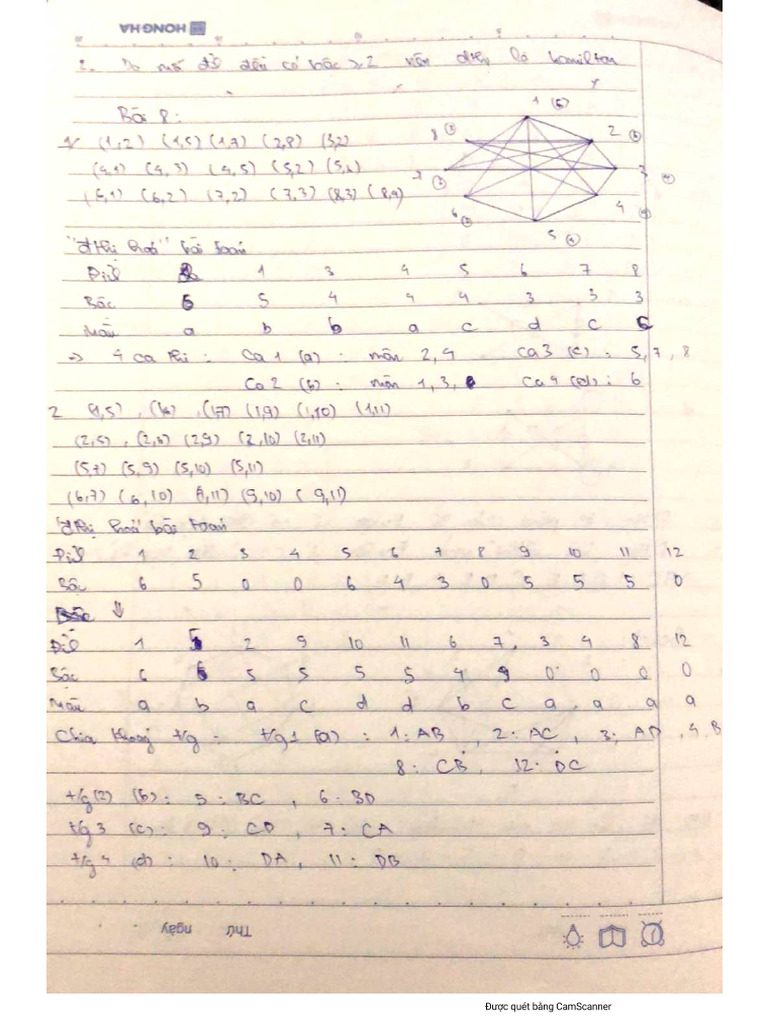 HONG HA
2. Do mỗi đỉnh đều có bậc ≥ 2 nên đthị là hamilton
Bài 8:
1/ (1,2) (1,5) (1,7) (2,8) (3,2)
(4,1) (4,3) (4,5) (5,2) (5,6)
(6,1) (6,2) (7,2) (7,3) (8,3) (8,4)
1 (5)
8 (3)
2
3
6
4
5 (4)
"đthị hoá" bài toán
Đỉnh 2 1 3 4 5 6 7 8
Bậc 5 5 4 4 4 3 3 3
Màu a b b a c d c c
=> 4 ca thi: Ca 1 (a): môn 2, 4 ca 3 (c): 5, 7, 8
Ca 2 (b): môn 1, 3, Ca 4 (d): 6
2 (1,5), (1,6), (1,7) (1,9) (1,10) (1,11)
(2,5), (2,6) (2,9) (2,10) (2,11)
(5,7) (5,9) (5,10) (5,11)
(6,7) (6,10) (9,10) (9,11)
đthị hoá bài toán
Đỉnh 1 2 3 4 5 6 7 8 9 10 11 12
Bậc 6 5 0 0 6 4 3 0 5 5 5 0
↓
Đỉnh 1 5 2 9 10 11 6 7 3 4 8 12
Bậc 6 6 5 5 5 5 4 0 0 0 0
Màu a b a c d d b c a a a a
Chia khoảng t/g: t/g 1 (a): 1: AB, 2: AC, 3: AD, 4: B
8: CB, 12: DC
t/g (2) (b): 5: BC, 6: BD
t/g 3 (c): 9: CD, 7: CA
t/g 4 (d): 10: DA, 11: DB
Thứ ngày
Được quét bằng CamScanner